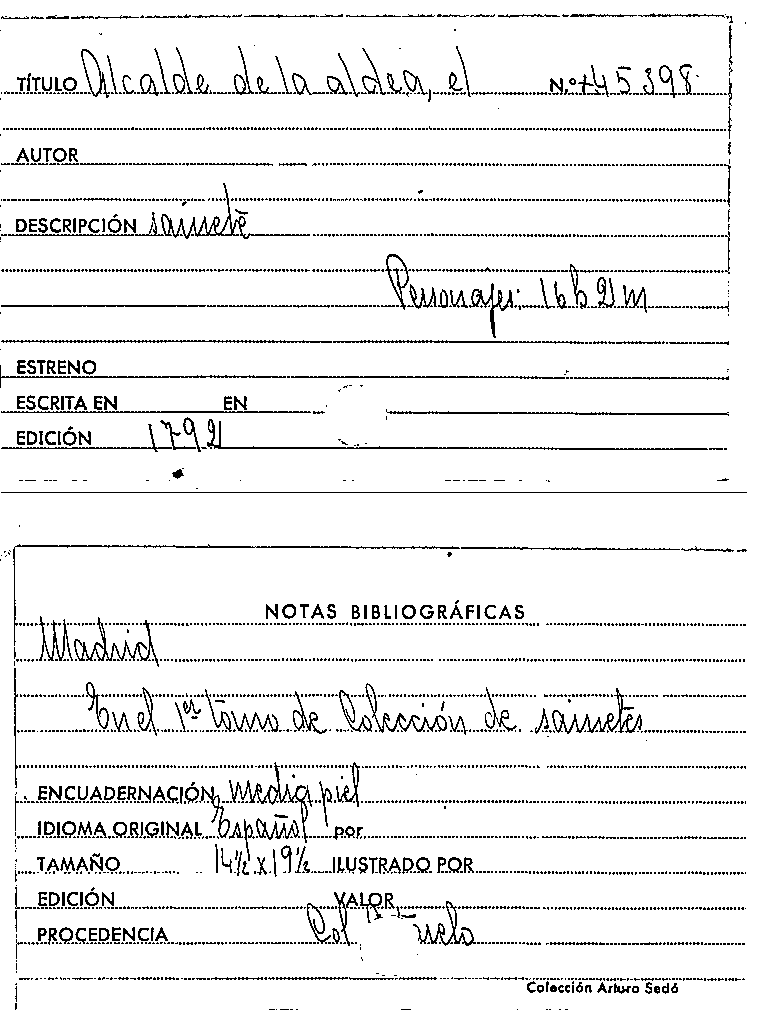 TÍTULO Alcalde de la aldea, el N.º 45398
AUTOR
DESCRIPCIÓN sainete
Personajes: 16 h 2 m
ESTRENO
ESCRITA EN EN
EDICIÓN 1792
NOTAS BIBLIOGRÁFICAS
Madrid
En el 1er tomo de Colección de sainetes
ENCUADERNACIÓN media piel
IDIOMA ORIGINAL Español por
TAMAÑO 14½ x 19½ ILUSTRADO POR
EDICIÓN VALOR
PROCEDENCIA Col.
Colección Arturo Sedó